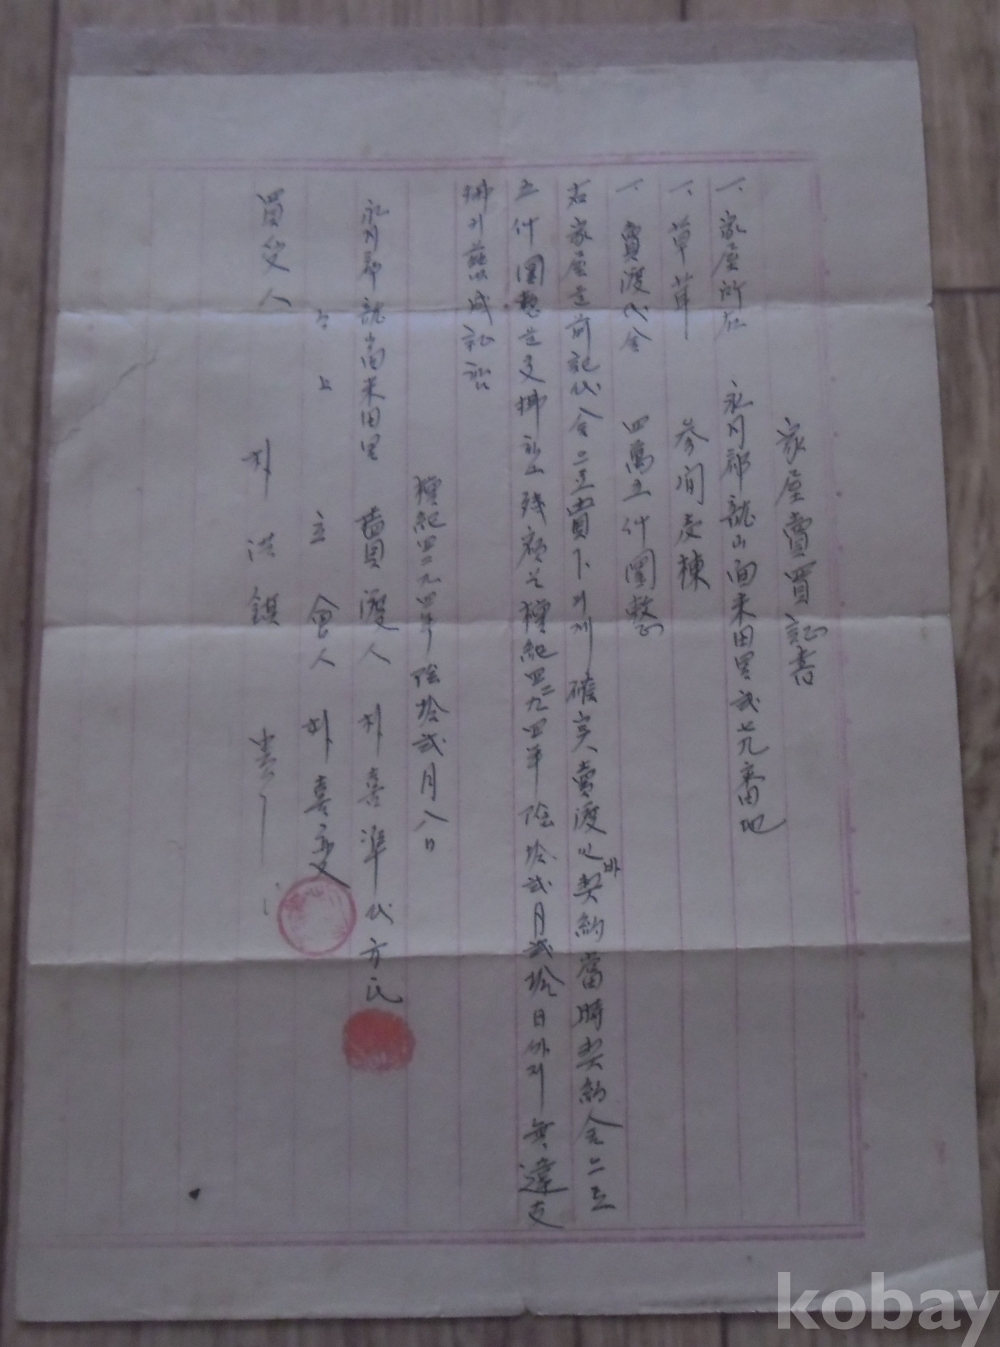 家屋賣買証書
一、家屋所在 永同郡龍山面末田里貳七九番地
一、草葺 參間壹棟
一、賣渡代金 四萬五仟圜整
右家屋을前記代金으로賣下하기에確実賣渡心바契約當時契約金으로
五仟圜整을支拂 殘額은檀紀四二九四年陰拾貳月貳拾日外지無違支
拂키 成証
檀紀四二九四年陰拾貳月八日
永同郡龍山面末田里 賣渡人 朴喜準代方氏
仝上 立會人 朴喜
買受人 朴洪 貴下
kobay